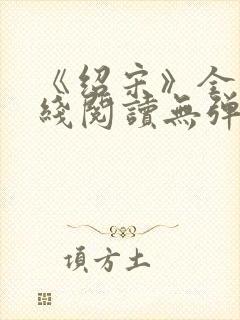 《绍宋》全
綫閱讀無弹
頃方土